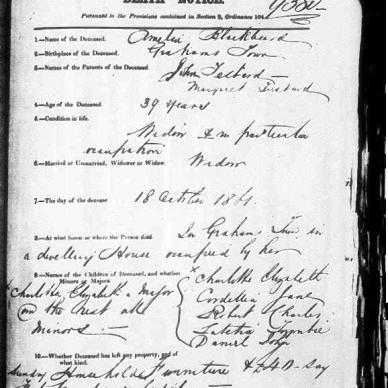 DEATH NOTICE.
Pursuant to the Provisions contained in Section 2, Ordinance 104.
1.—Name of the Deceased. Amelia Blackbeard
2.—Birthplace of the Deceased. Grahams Town
3.—Names of the Parents of the Deceased. John
Margaret
4.—Age of the Deceased. 39 years
5.—Condition in life.
Widow & no particular
occupation
6.—Married or Unmarried, Widower or Widow. Widow
7.—The day of the decease 18 October 1861.
8.—At what house or where the Person died. In Grahams Town in
a dwelling House occupied by her
9.—Names of the Children of Deceased, and whether
Minors or Majors.
Charlotte Elizabeth
Charlotte Elizabeth a Major
Cordelia Jane
and the rest all
Robert Charles
Minors
Letitia
Daniel John
10.—Whether Deceased has left any property, and of
what kind.
Sundry Household Furniture &